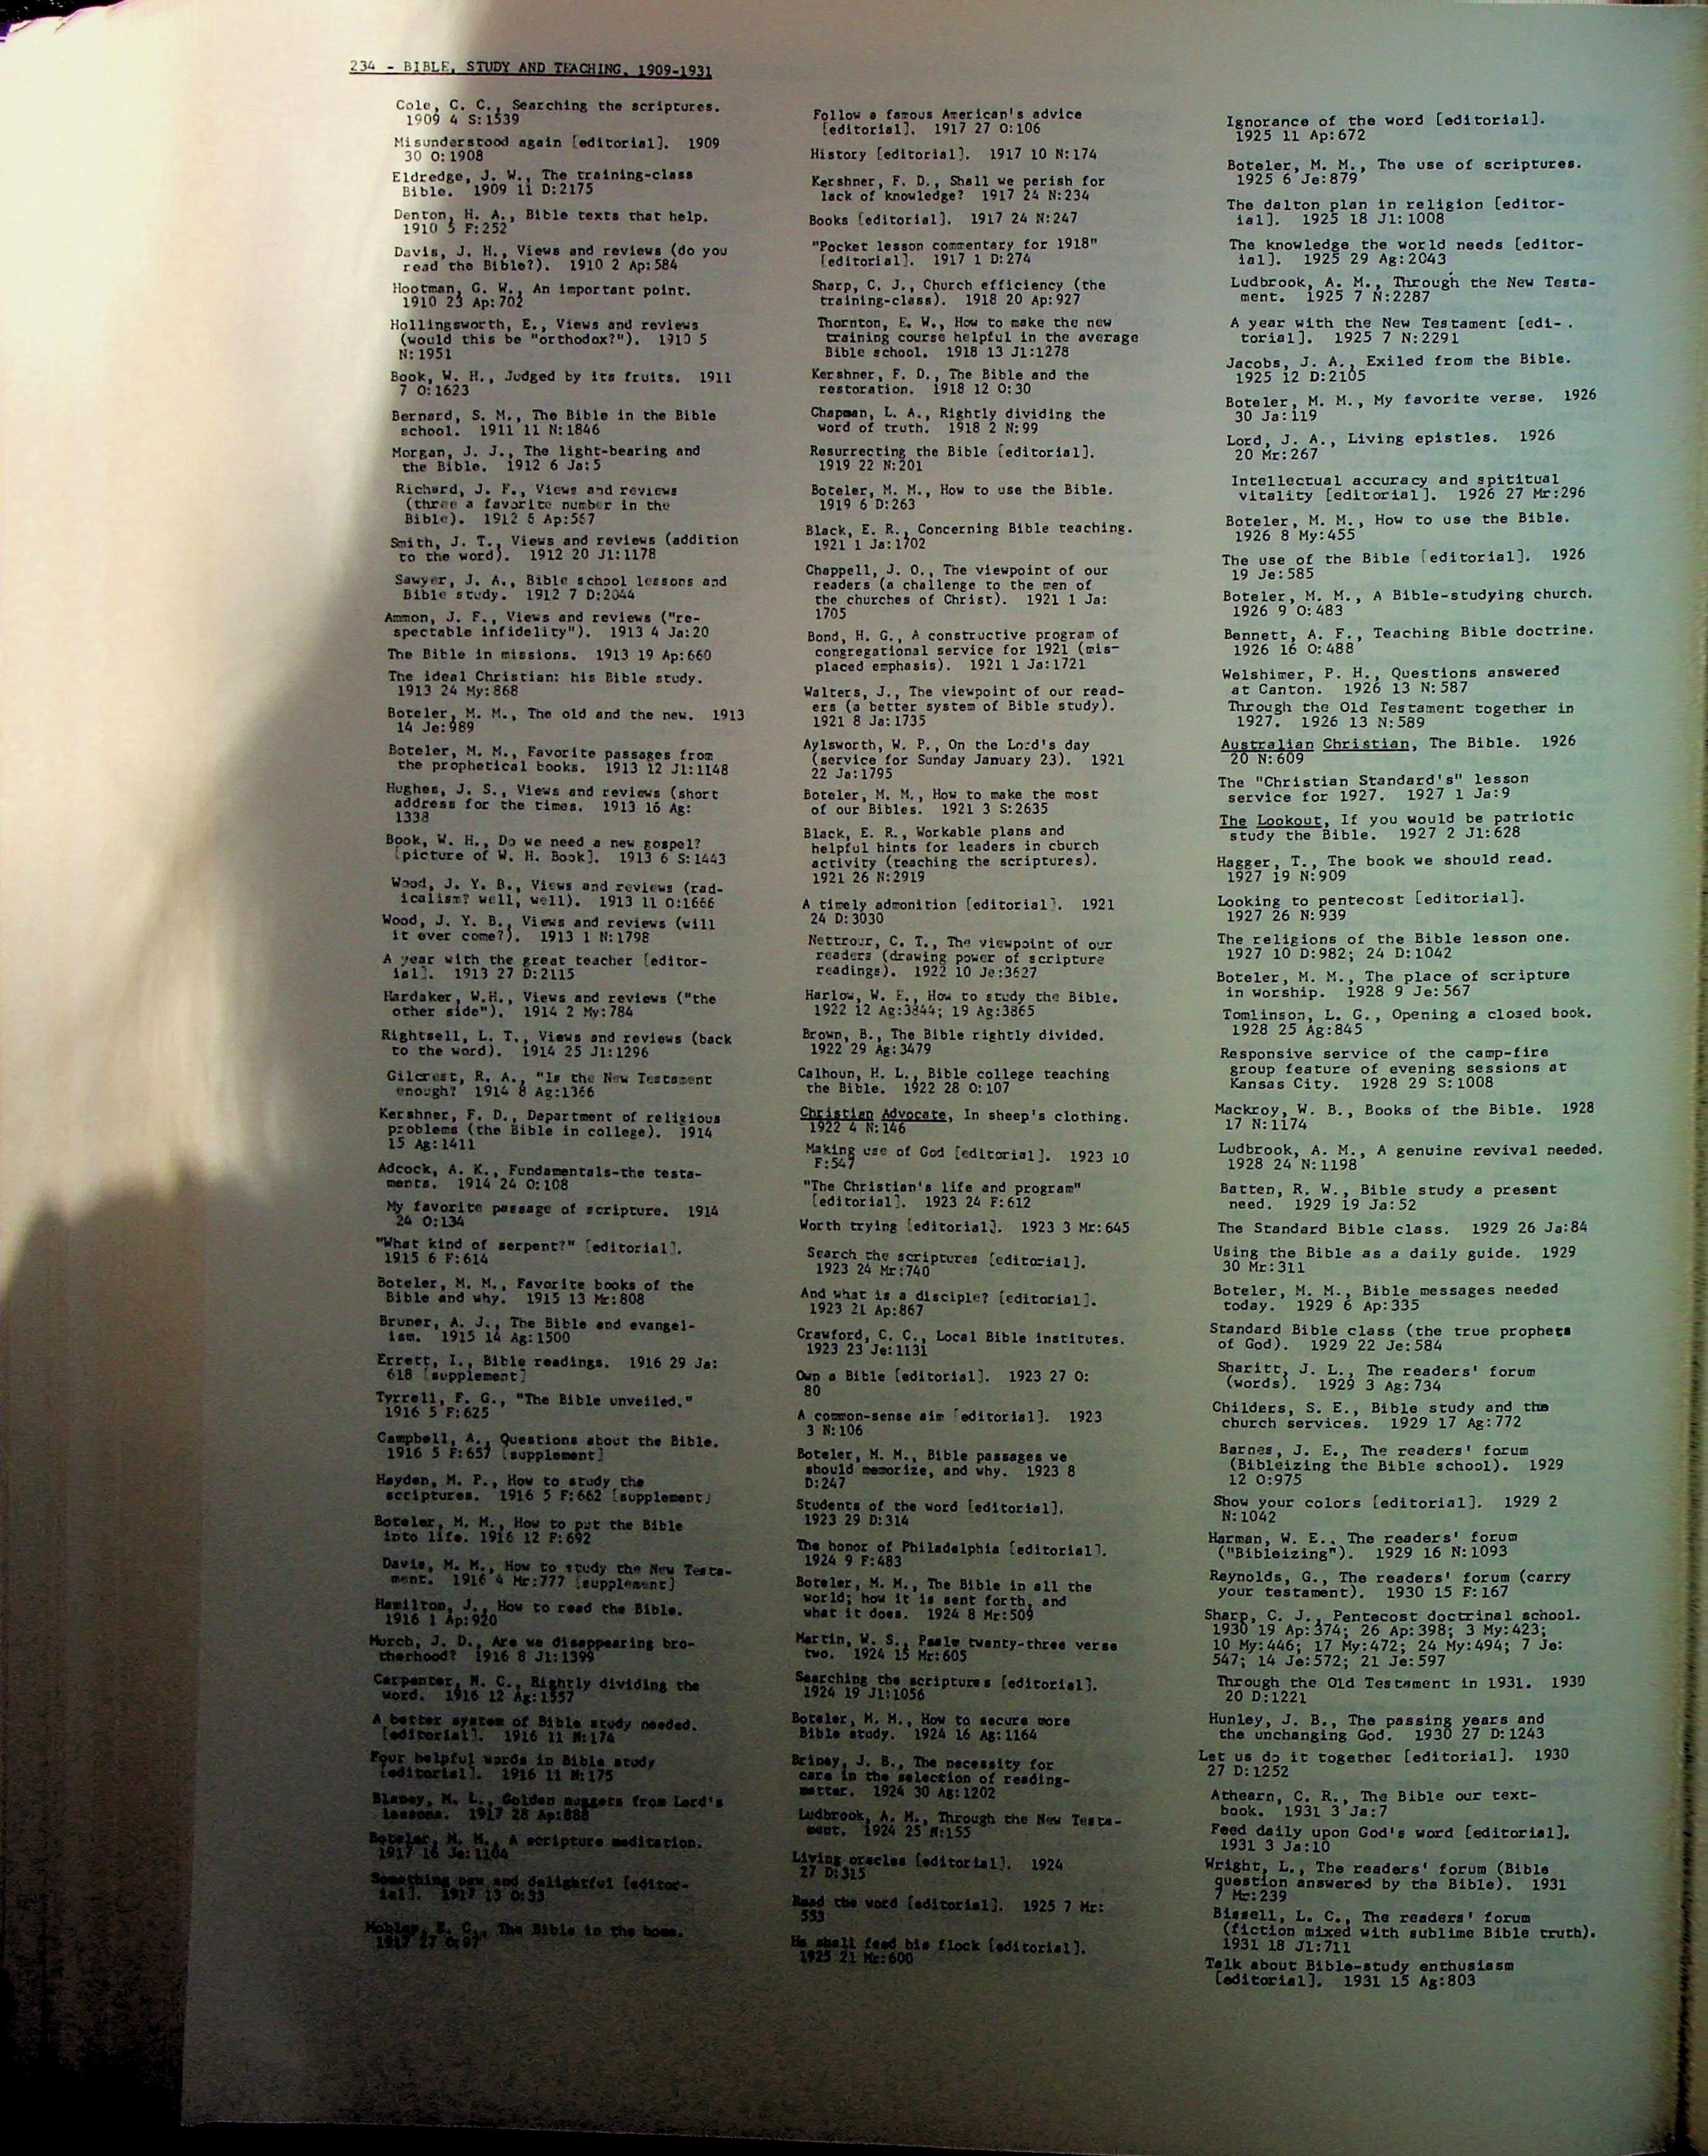 234 - BIBLE, STUDY AND TEACHING, 1909-1931
Cole, C. C., Searching the scriptures.
1909 4 S:1539
Misunderstood again [editorial]. 1909
30 O:1908
Eldredge, J. W., The training-class
Bible. 1909 11 D:2175
Denton, H. A., Bible texts that help.
1910 5 F:252
Davis, J. H., Views and reviews (do you
read the Bible?). 1910 2 Ap:584
Hootman, G. W., An important point.
1910 23 Ap:702
Hollingsworth, E., Views and reviews
(would this be "orthodox?"). 1910 5
N:1951
Book, W. H., Judged by its fruits. 1911
7 O:1623
Bernard, S. M., The Bible in the Bible
school. 1911 11 N:1846
Morgan, J. J., The light-bearing and
the Bible. 1912 6 Ja:5
Richard, J. F., Views and reviews
(three a favorite number in the
Bible). 1912 6 Ap:567
Smith, J. T., Views and reviews (addition
to the word). 1912 20 Jl:1178
Sawyer, J. A., Bible school lessons and
Bible study. 1912 7 D:2044
Ammon, J. F., Views and reviews ("re-
spectable infidelity"). 1913 4 Ja:20
The Bible in missions. 1913 19 Ap:660
The ideal Christian: his Bible study.
1913 24 My:868
Boteler, M. M., The old and the new. 1913
14 Je:989
Boteler, M. M., Favorite passages from
the prophetical books. 1913 12 Jl:1148
Hughes, J. S., Views and reviews (short
address for the times. 1913 16 Ag:
1338
Book, W. H., Do we need a new gospel?
[picture of W. H. Book]. 1913 6 S:1443
Wood, J. Y. B., Views and reviews (rad-
icalism? well, well). 1913 11 O:1666
Wood, J. Y. B., Views and reviews (will
it ever come?). 1913 1 N:1798
A year with the great teacher [editor-
ial]. 1913 27 D:2115
Hardaker, W.H., Views and reviews ("the
other side"). 1914 2 My:784
Rightsell, L. T., Views and reviews (back
to the word). 1914 25 Jl:1296
Gilcrest, R. A., "Is the New Testament
enough? 1914 8 Ag:1366
Kershner, F. D., Department of religious
problems (the Bible in college). 1914
15 Ag:1411
Adcock, A. K., Fundamentals-the testa-
ments. 1914 24 O:108
My favorite passage of scripture. 1914
24 O:134
"What kind of serpent?" [editorial].
1915 6 F:614
Boteler, M. M., Favorite books of the
Bible and why. 1915 13 Mr:808
Bruner, A. J., The Bible and evangel-
ism. 1915 14 Ag:1500
Errett, I., Bible readings. 1916 29 Ja:
618 [supplement]
Tyrrell, F. G., "The Bible unveiled."
1916 5 F:625
Campbell, A., Questions about the Bible.
1916 5 F:657 [supplement]
Hayden, M. P., How to study the
scriptures. 1916 5 F:662 [supplement]
Boteler, M. M., How to put the Bible
into life. 1916 12 F:692
Davis, M. M., How to study the New Testa-
ment. 1916 4 Mr:777 [supplement]
Hamilton, J., How to read the Bible.
1916 1 Ap:920
Murch, J. D., Are we disappearing bro-
therhood? 1916 8 Jl:1399
Carpenter, N. C., Rightly dividing the
word. 1916 12 Ag:1557
A better system of Bible study needed.
[editorial]. 1916 11 N:174
Four helpful words in Bible study
[editorial]. 1916 11 N:175
Blaney, M. L., Golden nuggets from Lord's
lessons. 1917 28 Ap:888
Boteler, M. M., A scripture meditation.
1917 16 Je:1104
Something new and delightful [editor-
ial]. 1917 13 O:33
The Bible in the home.
1917 27 O:97
Follow a famous American's advice
[editorial]. 1917 27 O:106
History [editorial]. 1917 10 N:174
Kershner, F. D., Shall we perish for
lack of knowledge? 1917 24 N:234
Books [editorial]. 1917 24 N:247
"Pocket lesson commentary for 1918"
[editorial]. 1917 1 D:274
Sharp, C. J., Church efficiency (the
training-class). 1918 20 Ap:927
Thornton, E. W., How to make the new
training course helpful in the average
Bible school. 1918 13 Jl:1278
Kershner, F. D., The Bible and the
restoration. 1918 12 O:30
Chapman, L. A., Rightly dividing the
word of truth. 1918 2 N:99
Resurrecting the Bible [editorial].
1919 22 N:201
Boteler, M. M., How to use the Bible.
1919 6 D:263
Black, E. R., Concerning Bible teaching.
1921 1 Ja:1702
Chappell, J. O., The viewpoint of our
readers (a challenge to the men of
the churches of Christ). 1921 1 Ja:
1705
Bond, H. G., A constructive program of
congregational service for 1921 (mis-
placed emphasis). 1921 1 Ja:1721
Walters, J., The viewpoint of our read-
ers (a better system of Bible study).
1921 8 Ja:1735
Aylsworth, W. P., On the Lord's day
(service for Sunday January 23). 1921
22 Ja:1795
Boteler, M. M., How to make the most
of our Bibles. 1921 3 S:2635
Black, E. R., Workable plans and
helpful hints for leaders in church
activity (teaching the scriptures).
1921 26 N:2919
A timely admonition [editorial]. 1921
24 D:3030
Nettrour, C. T., The viewpoint of our
readers (drawing power of scripture
readings). 1922 10 Je:3627
Harlow, W. E., How to study the Bible.
1922 12 Ag:3844; 19 Ag:3865
Brown, B., The Bible rightly divided.
1922 29 Ag:3479
Calhoun, H. L., Bible college teaching
the Bible. 1922 28 O:107
Christian Advocate, In sheep's clothing.
1922 4 N:146
Making use of God [editorial]. 1923 10
F:547
"The Christian's life and program"
[editorial]. 1923 24 F:612
Worth trying [editorial]. 1923 3 Mr:645
Search the scriptures [editorial].
1923 24 Mr:740
And what is a disciple? [editorial].
1923 21 Ap:867
Crawford, C. C., Local Bible institutes.
1923 23 Je:1131
Own a Bible [editorial]. 1923 27 O:
80
A common-sense aim [editorial]. 1923
3 N:106
Boteler, M. M., Bible passages we
should memorize, and why. 1923 8
D:247
Students of the word [editorial].
1923 29 D:314
The honor of Philadelphia [editorial].
1924 9 F:483
Boteler, M. M., The Bible in all the
world; how it is sent forth, and
what it does. 1924 8 Mr:509
Martin, W. S., Psalm twenty-three verse
two. 1924 15 Mr:605
Searching the scriptures [editorial].
1924 19 Jl:1056
Boteler, M. M., How to secure more
Bible study. 1924 16 Ag:1164
Briney, J. B., The necessity for
care in the selection of reading-
matter. 1924 30 Ag:1202
Ludbrook, A. M., Through the New Testa-
ment. 1924 25 N:155
Living oracles [editorial]. 1924
27 D:315
Read the word [editorial]. 1925 7 Mr:
553
He shall feed his flock [editorial].
1925 21 Mr:600
Ignorance of the word [editorial].
1925 11 Ap:672
Boteler, M. M., The use of scriptures.
1925 6 Je:879
The dalton plan in religion [editor-
ial]. 1925 18 Jl:1008
The knowledge the world needs [editor-
ial]. 1925 29 Ag:2043
Ludbrook, A. M., Through the New Testa-
ment. 1925 7 N:2287
A year with the New Testament [edi-
torial]. 1925 7 N:2291
Jacobs, J. A., Exiled from the Bible.
1925 12 D:2105
Boteler, M. M., My favorite verse. 1926
30 Ja:119
Lord, J. A., Living epistles. 1926
20 Mr:267
Intellectual accuracy and spititual
vitality [editorial]. 1926 27 Mr:296
Boteler, M. M., How to use the Bible.
1926 8 My:455
The use of the Bible [editorial]. 1926
19 Je:585
Boteler, M. M., A Bible-studying church.
1926 9 O:483
Bennett, A. F., Teaching Bible doctrine.
1926 16 O:488
Welshimer, P. H., Questions answered
at Canton. 1926 13 N:587
Through the Old Testament together in
1927. 1926 13 N:589
Australian Christian, The Bible. 1926
20 N:609
The "Christian Standard's" lesson
service for 1927. 1927 1 Ja:9
The Lookout, If you would be patriotic
study the Bible. 1927 2 Jl:628
Hagger, T., The book we should read.
1927 19 N:909
Looking to pentecost [editorial].
1927 26 N:939
The religions of the Bible lesson one.
1927 10 D:982; 24 D:1042
Boteler, M. M., The place of scripture
in worship. 1928 9 Je:567
Tomlinson, L. G., Opening a closed book.
1928 25 Ag:845
Responsive service of the camp-fire
group feature of evening sessions at
Kansas City. 1928 29 S:1008
Mackroy, W. B., Books of the Bible. 1928
17 N:1174
Ludbrook, A. M., A genuine revival needed.
1928 24 N:1198
Batten, R. W., Bible study a present
need. 1929 19 Ja:52
The Standard Bible class. 1929 26 Ja:84
Using the Bible as a daily guide. 1929
30 Mr:311
Boteler, M. M., Bible messages needed
today. 1929 6 Ap:335
Standard Bible class (the true prophets
of God). 1929 22 Je:584
Sharitt, J. L., The readers' forum
(words). 1929 3 Ag:734
Childers, S. E., Bible study and the
church services. 1929 17 Ag:772
Barnes, J. E., The readers' forum
(Bibleizing the Bible school). 1929
12 O:975
Show your colors [editorial]. 1929 2
N:1042
Harman, W. E., The readers' forum
("Bibleizing"). 1929 16 N:1093
Reynolds, G., The readers' forum (carry
your testament). 1930 15 F:167
Sharp, C. J., Pentecost doctrinal school.
1930 19 Ap:374; 26 Ap:398; 3 My:423;
10 My:446; 17 My:472; 24 My:494; 7 Je:
547; 14 Je:572; 21 Je:597
Through the Old Testament in 1931. 1930
20 D:1221
Hunley, J. B., The passing years and
the unchanging God. 1930 27 D:1243
Let us do it together [editorial]. 1930
27 D:1252
Athearn, C. R., The Bible our text-
book. 1931 3 Ja:7
Feed daily upon God's word [editorial].
1931 3 Ja:10
Wright, L., The readers' forum (Bible
question answered by the Bible). 1931
7 Mr:239
Bissell, L. C., The readers' forum
(fiction mixed with sublime Bible truth).
1931 18 Jl:711
Talk about Bible-study enthusiasm
[editorial]. 1931 15 Ag:803